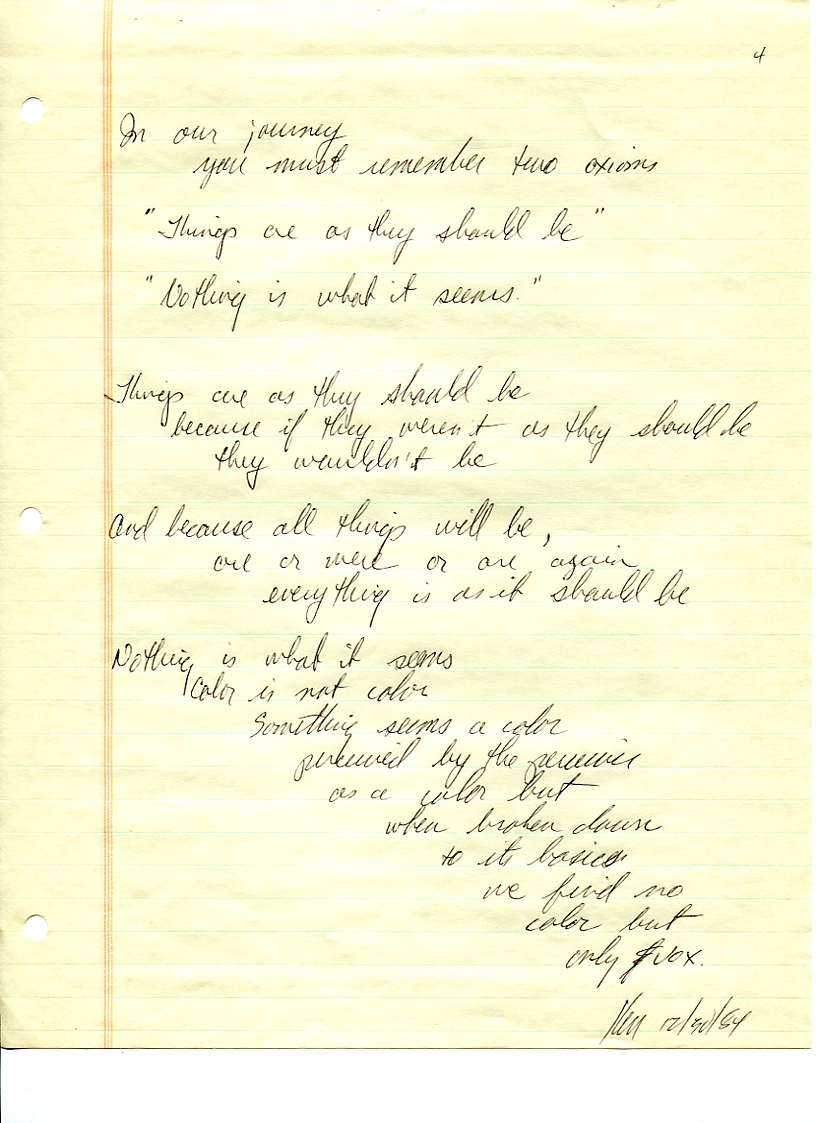 4
In our journey
you must remember two axioms
"Things are as they should be"
"Nothing is what it seems."
Things are as they should be
because if they weren't as they should be
they wouldn't be
And because all things will be,
are or were or are again
everything is as it should be
Nothing is what it seems
Color is not color
Something seems a color
perceived by the
as a color but
when broken down
to its basics
we find no
color but
only
12/30/84